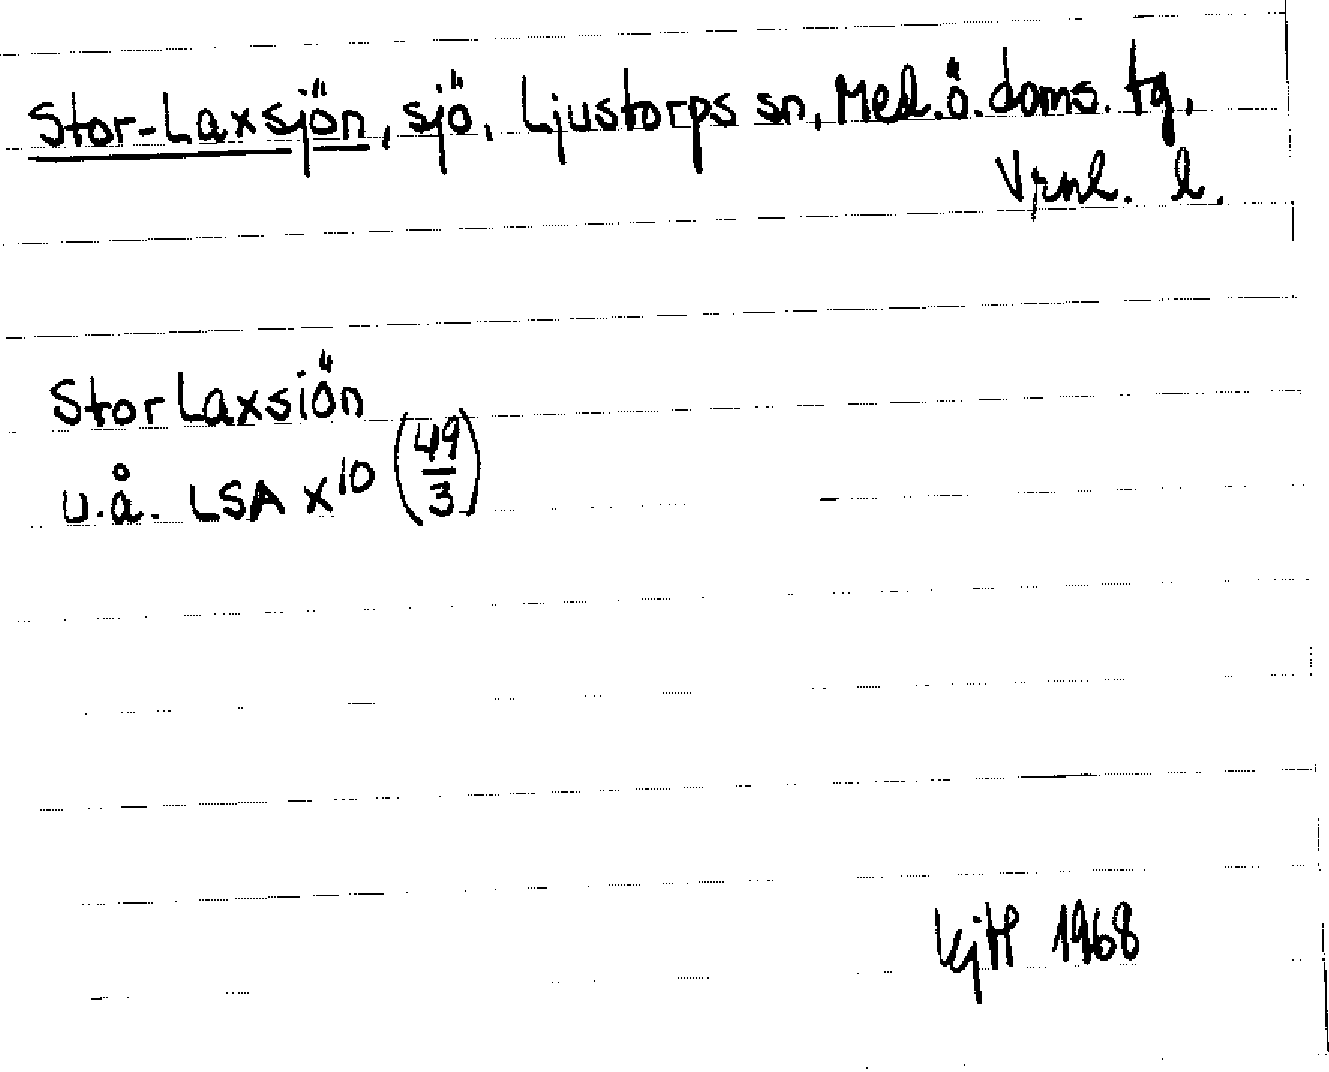 Stor-Laxsjön, sjö, Ljustorps sn, Med.ö.doms.tg,
Vrnl. l.
Stor Laxsiön
u.å. LSA x¹⁰ (49/3)
1968